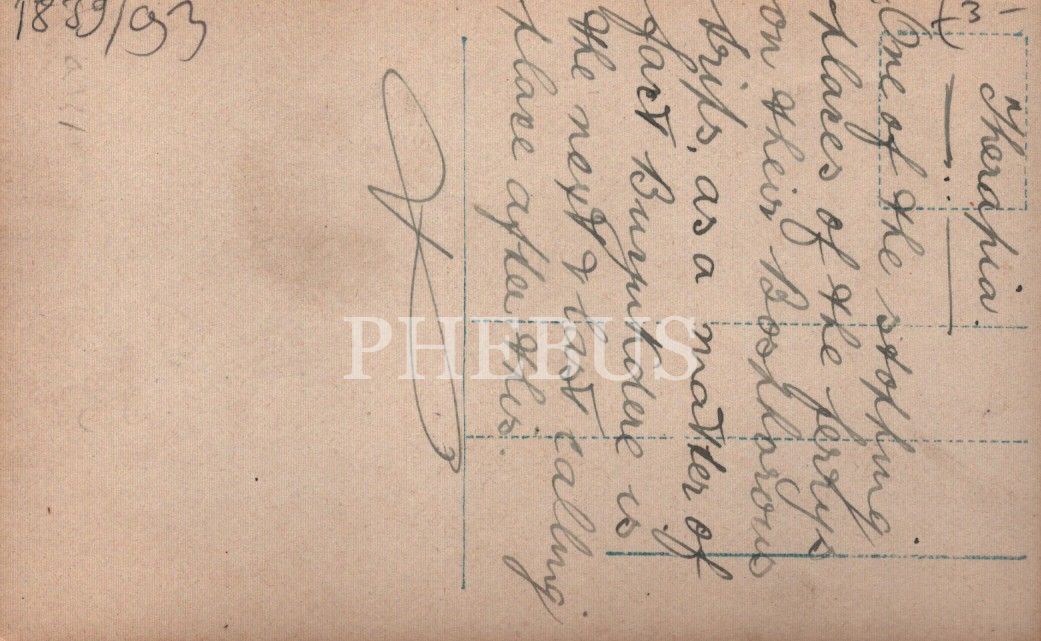 Therapia.
One of the stopping
places of the ferrys
on their Bosphorous
trips, as a matter of
fact Buyukdere is
the next & last calling
place after this.
1839/93
PHEBUS